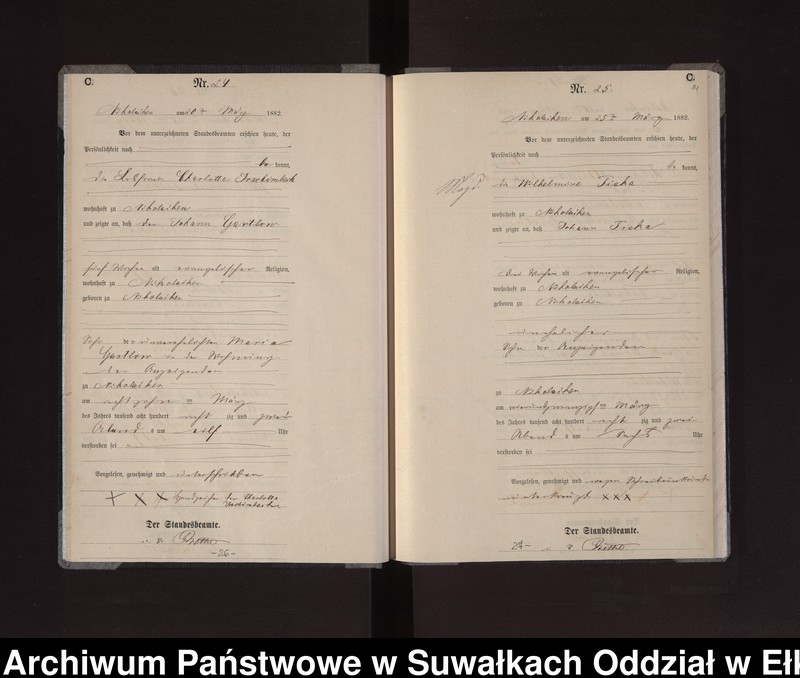 C.
Nr. 24
Nikolaiken am 20ten März 1882.
Vor dem unterzeichneten Standesbeamten erschien heute, der
Persönlichkeit nach
be kannt,
die Charlotte
wohnhaft zu Nikolaiken
und zeigte an, daß der Johann Gertlow
fünf Wochen alt evangelischer Religion,
wohnhaft zu Nikolaiken
geboren zu Nikolaiken
Sohn der unverehelichten Maria
Gertlow in der Wohnung
der Anzeigenden
zu Nikolaiken
am achtzehnten März
des Jahres tausend acht hundert acht zig und zwei
Abends um elf Uhr
verstorben sei
Vorgelesen, genehmigt und unterschrieben
+ X X Handzeichen der Charlotte
Der Standesbeamte.
- 26 -
C.
Nr. 25.
Nikolaiken am 25ten März 1882.
Vor dem unterzeichneten Standesbeamten erschien heute, der
Persönlichkeit nach
be kannt,
Magd. die Wilhelmine Tiska
wohnhaft zu Nikolaiken
und zeigte an, daß Johann Tiska
drei Wochen alt evangelischer Religion,
wohnhaft zu Nikolaiken
geboren zu Nikolaiken
unehelicher
Sohn der Anzeigenden
zu Nikolaiken
am vierundzwanzigsten März
des Jahres tausend acht hundert acht zig und zwei
Abend s um sechs Uhr
verstorben sei
Vorgelesen, genehmigt und wegen Schreibensunkunde
unterkreuzt XXX
Der Standesbeamte.
27
Archiwum Państwowe w Suwałkach Oddział w Ełk